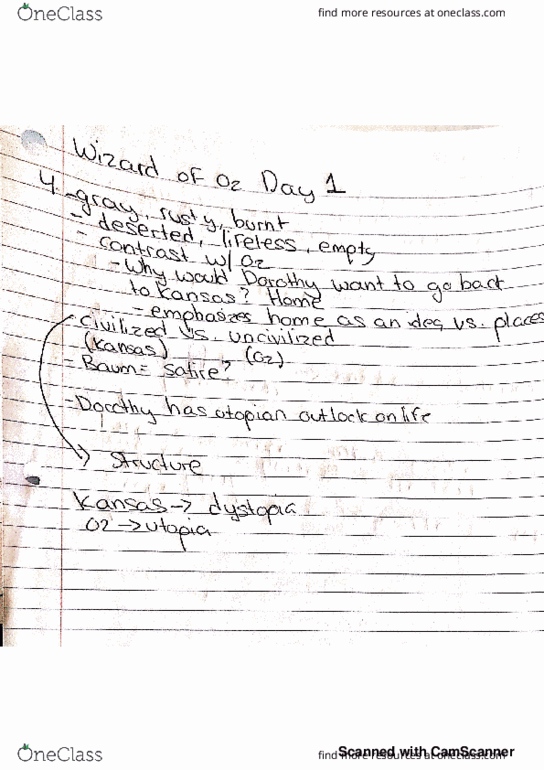 OneClass
find more resources at oneclass.com
Wizard of Oz Day 1
4. -gray, rusty, burnt
- deserted, lifeless, empty
- contrast w/ Oz
- Why would Dorothy want to go back
to Kansas? Home
- emphasizes home as an idea vs. places
- civilized vs. uncivilized
(Kansas) (Oz)
- Baum = satire?
- Dorothy has utopian outlook on life
Structure
Kansas → dystopia
Oz → utopia
OneClass
find more resources at oneclass.com
Scanned with CamScanner